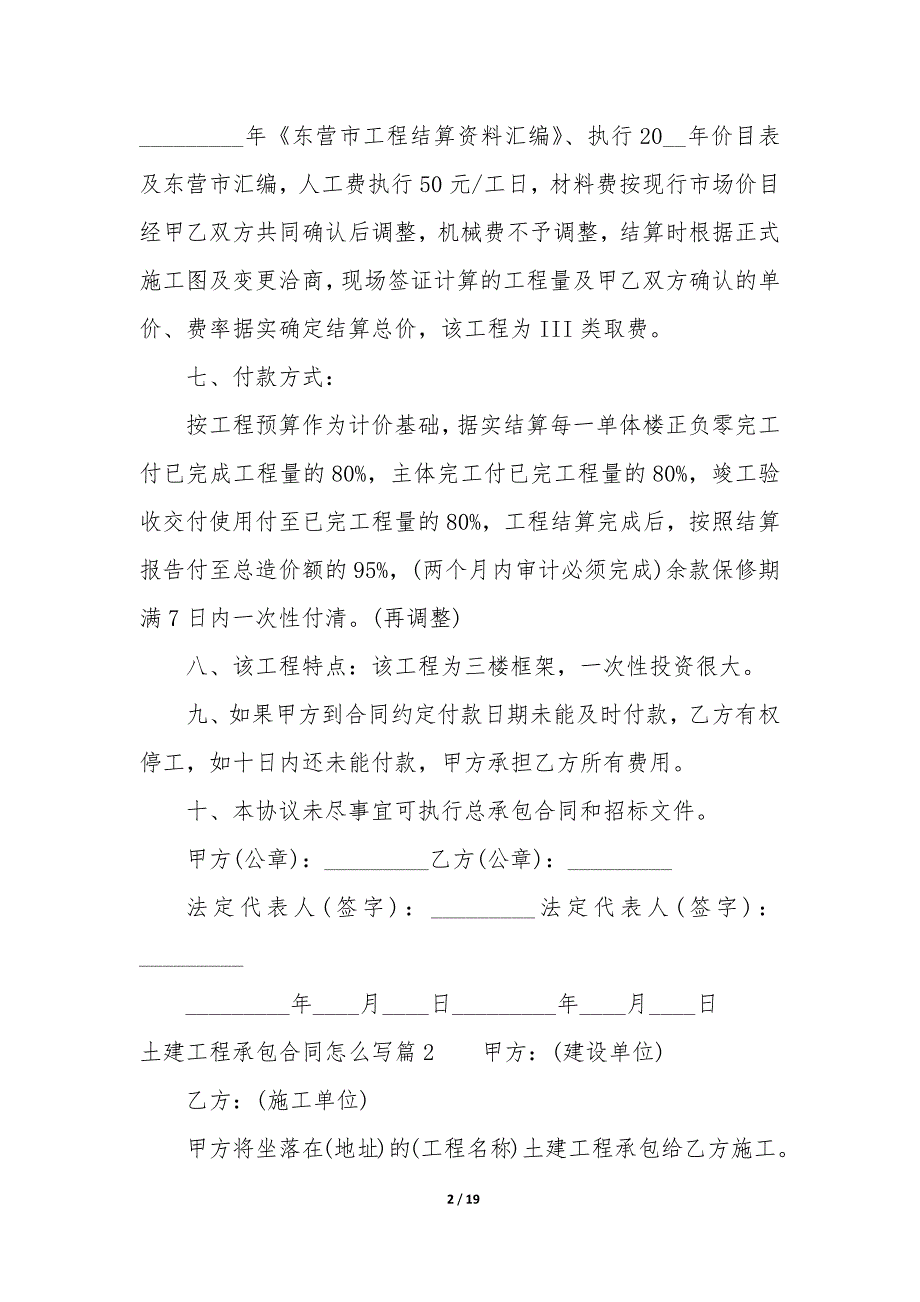 _________年《东营市工程结算资料汇编》、执行20__年价目表
及东营市汇编，人工费执行50元/工日，材料费按现行市场价目
经甲乙双方共同确认后调整，机械费不予调整，结算时根据正式
施工图及变更洽商，现场签证计算的工程量及甲乙双方确认的单
价、费率据实确定结算总价，该工程为III类取费。
七、付款方式：
按工程预算作为计价基础，据实结算每一单体楼正负零完工
付已完成工程量的80%，主体完工付已完工程量的80%，竣工验
收交付使用付至已完工程量的80%，工程结算完成后，按照结算
报告付至总造价额的95%，(两个月内审计必须完成)余款保修期
满7日内一次性付清。(再调整)
八、该工程特点：该工程为三楼框架，一次性投资很大。
九、如果甲方到合同约定付款日期未能及时付款，乙方有权
停工，如十日内还未能付款，甲方承担乙方所有费用。
十、本协议未尽事宜可执行总承包合同和招标文件。
甲方(公章)：_________乙方(公章)：_________
法定代表人(签字)：_________法定代表人(签字)：
_________
_________年____月____日_________年____月____日
土建工程承包合同怎么写篇2 甲方：(建设单位)
乙方：(施工单位)
甲方将坐落在(地址)的(工程名称)土建工程承包给乙方施工。
2 / 19